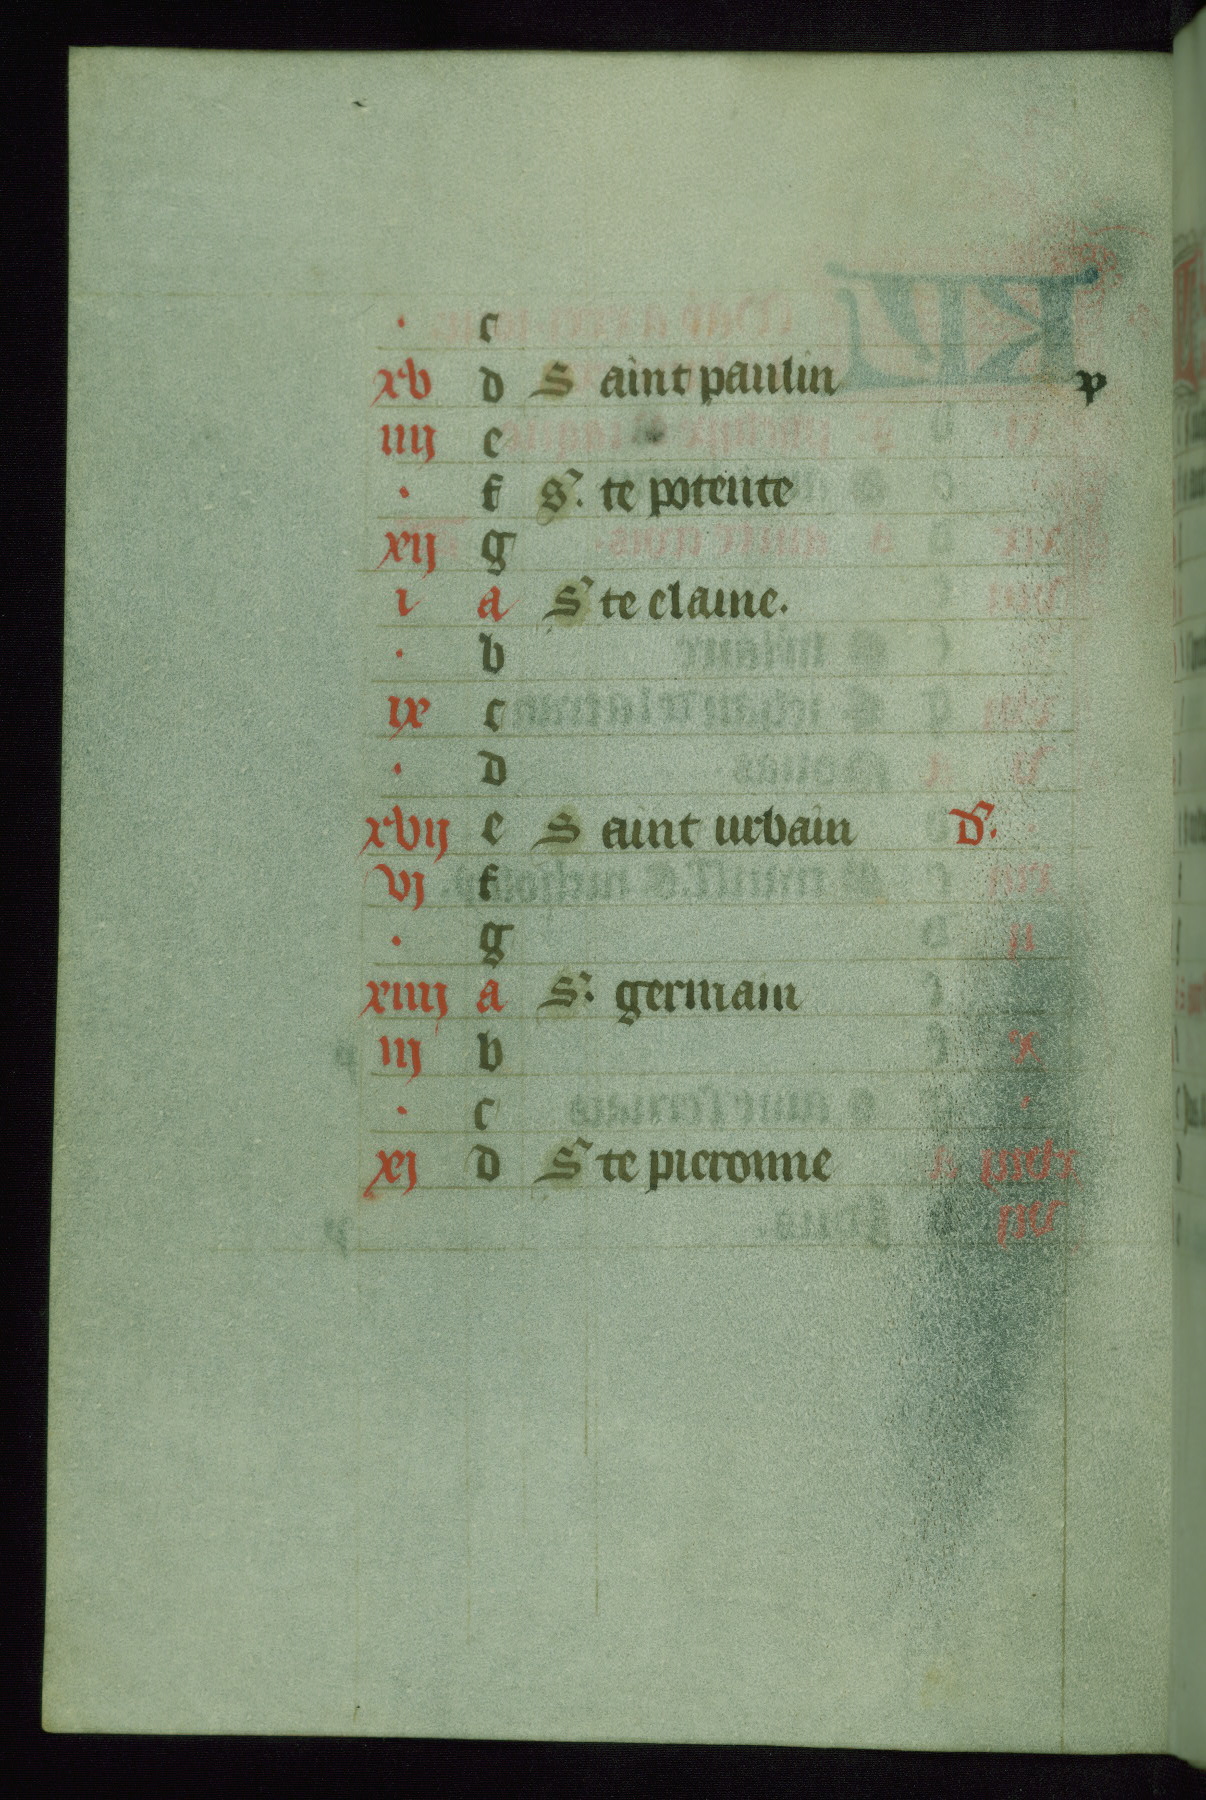 · c
xv d Saint paulin p
iiij e
· f S. te potente
xij g
i a Ste elaine.
· b
ix c
· d
xvij e Saint urbain D.
vj f
· g
xiiij a S. germain
iij b
· c
xj d Ste pieronne